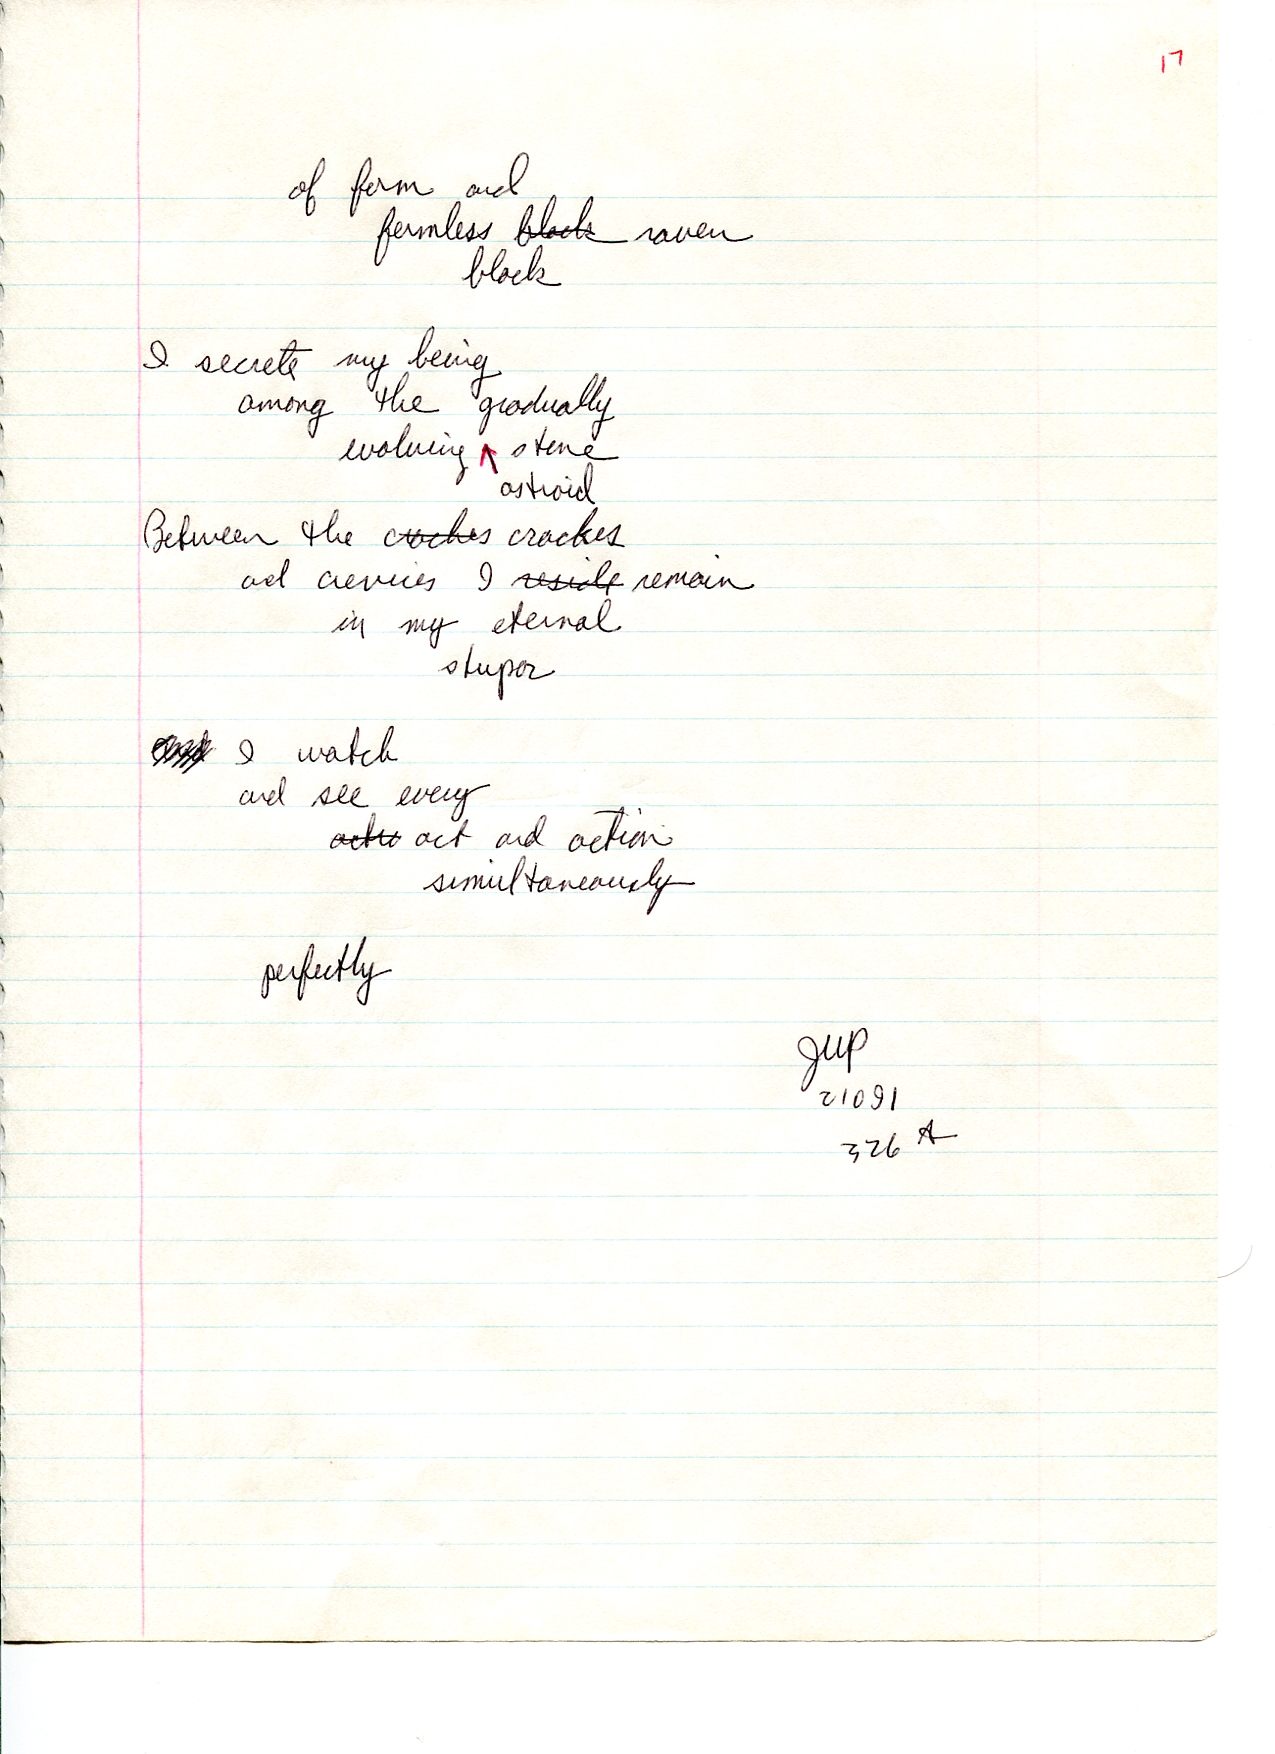 17
of form and
formless black raven
black
I secrete my being
among the gradually
evolving ^ stone
astroid
Between the craches crackes
and crevices I reside remain
in my eternal
stupor
I watch
and see every
actio act and action
simultaneously
perfectly
JWP
21091
326 A